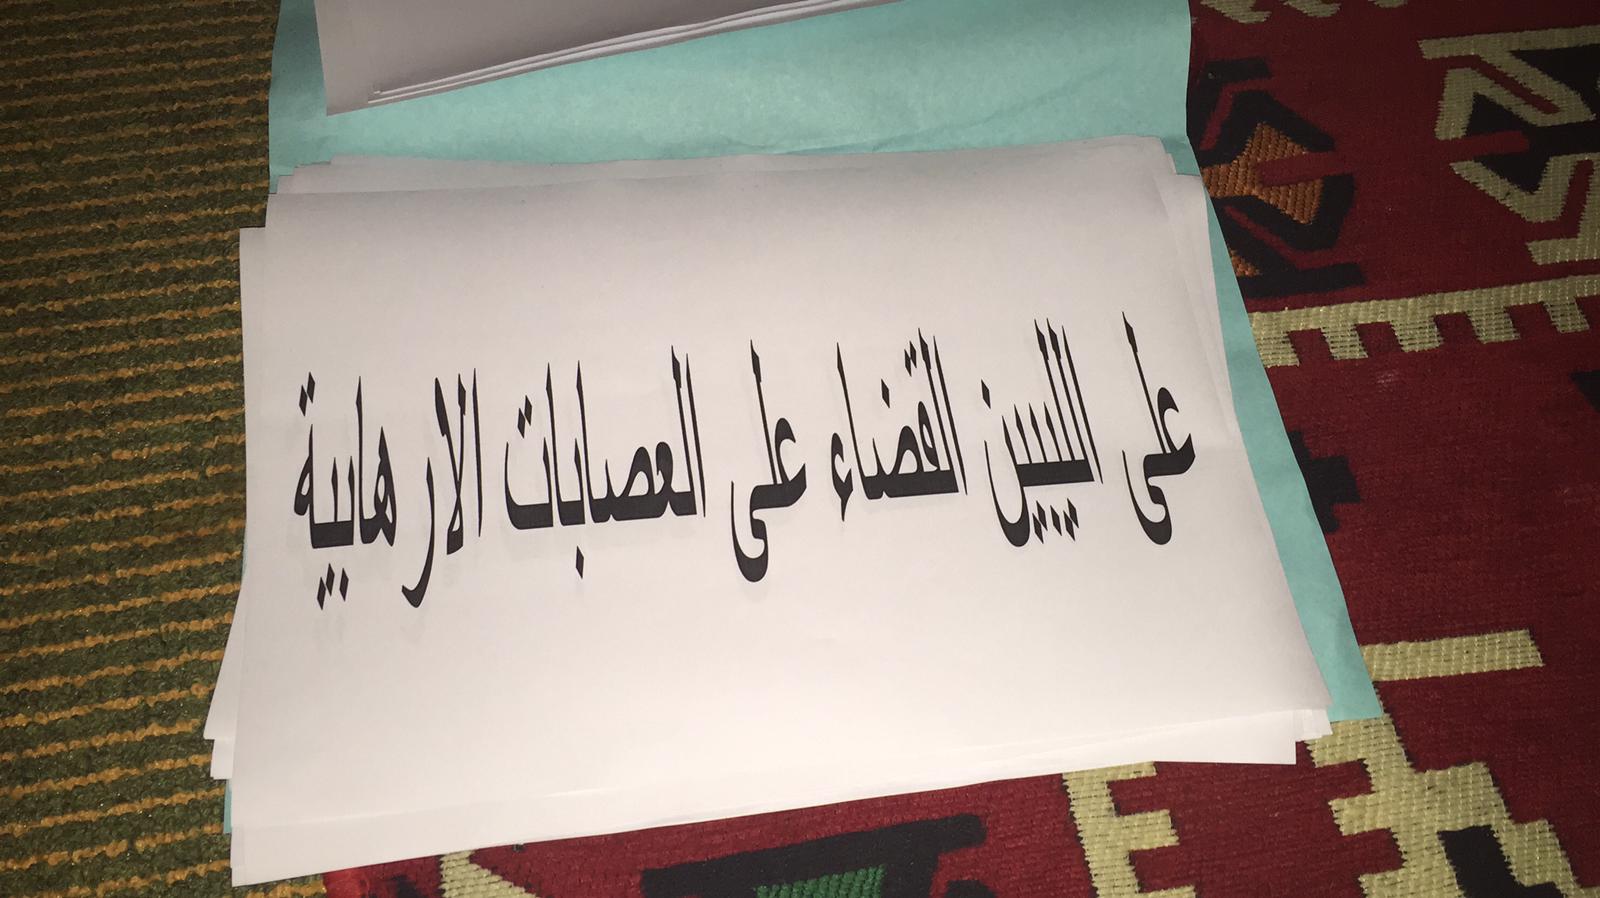 على الليبين القضاء على العصابات الارهابية